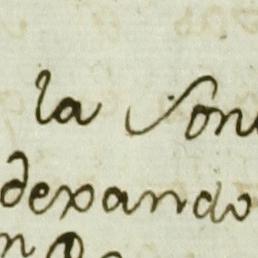 la Son
dexando